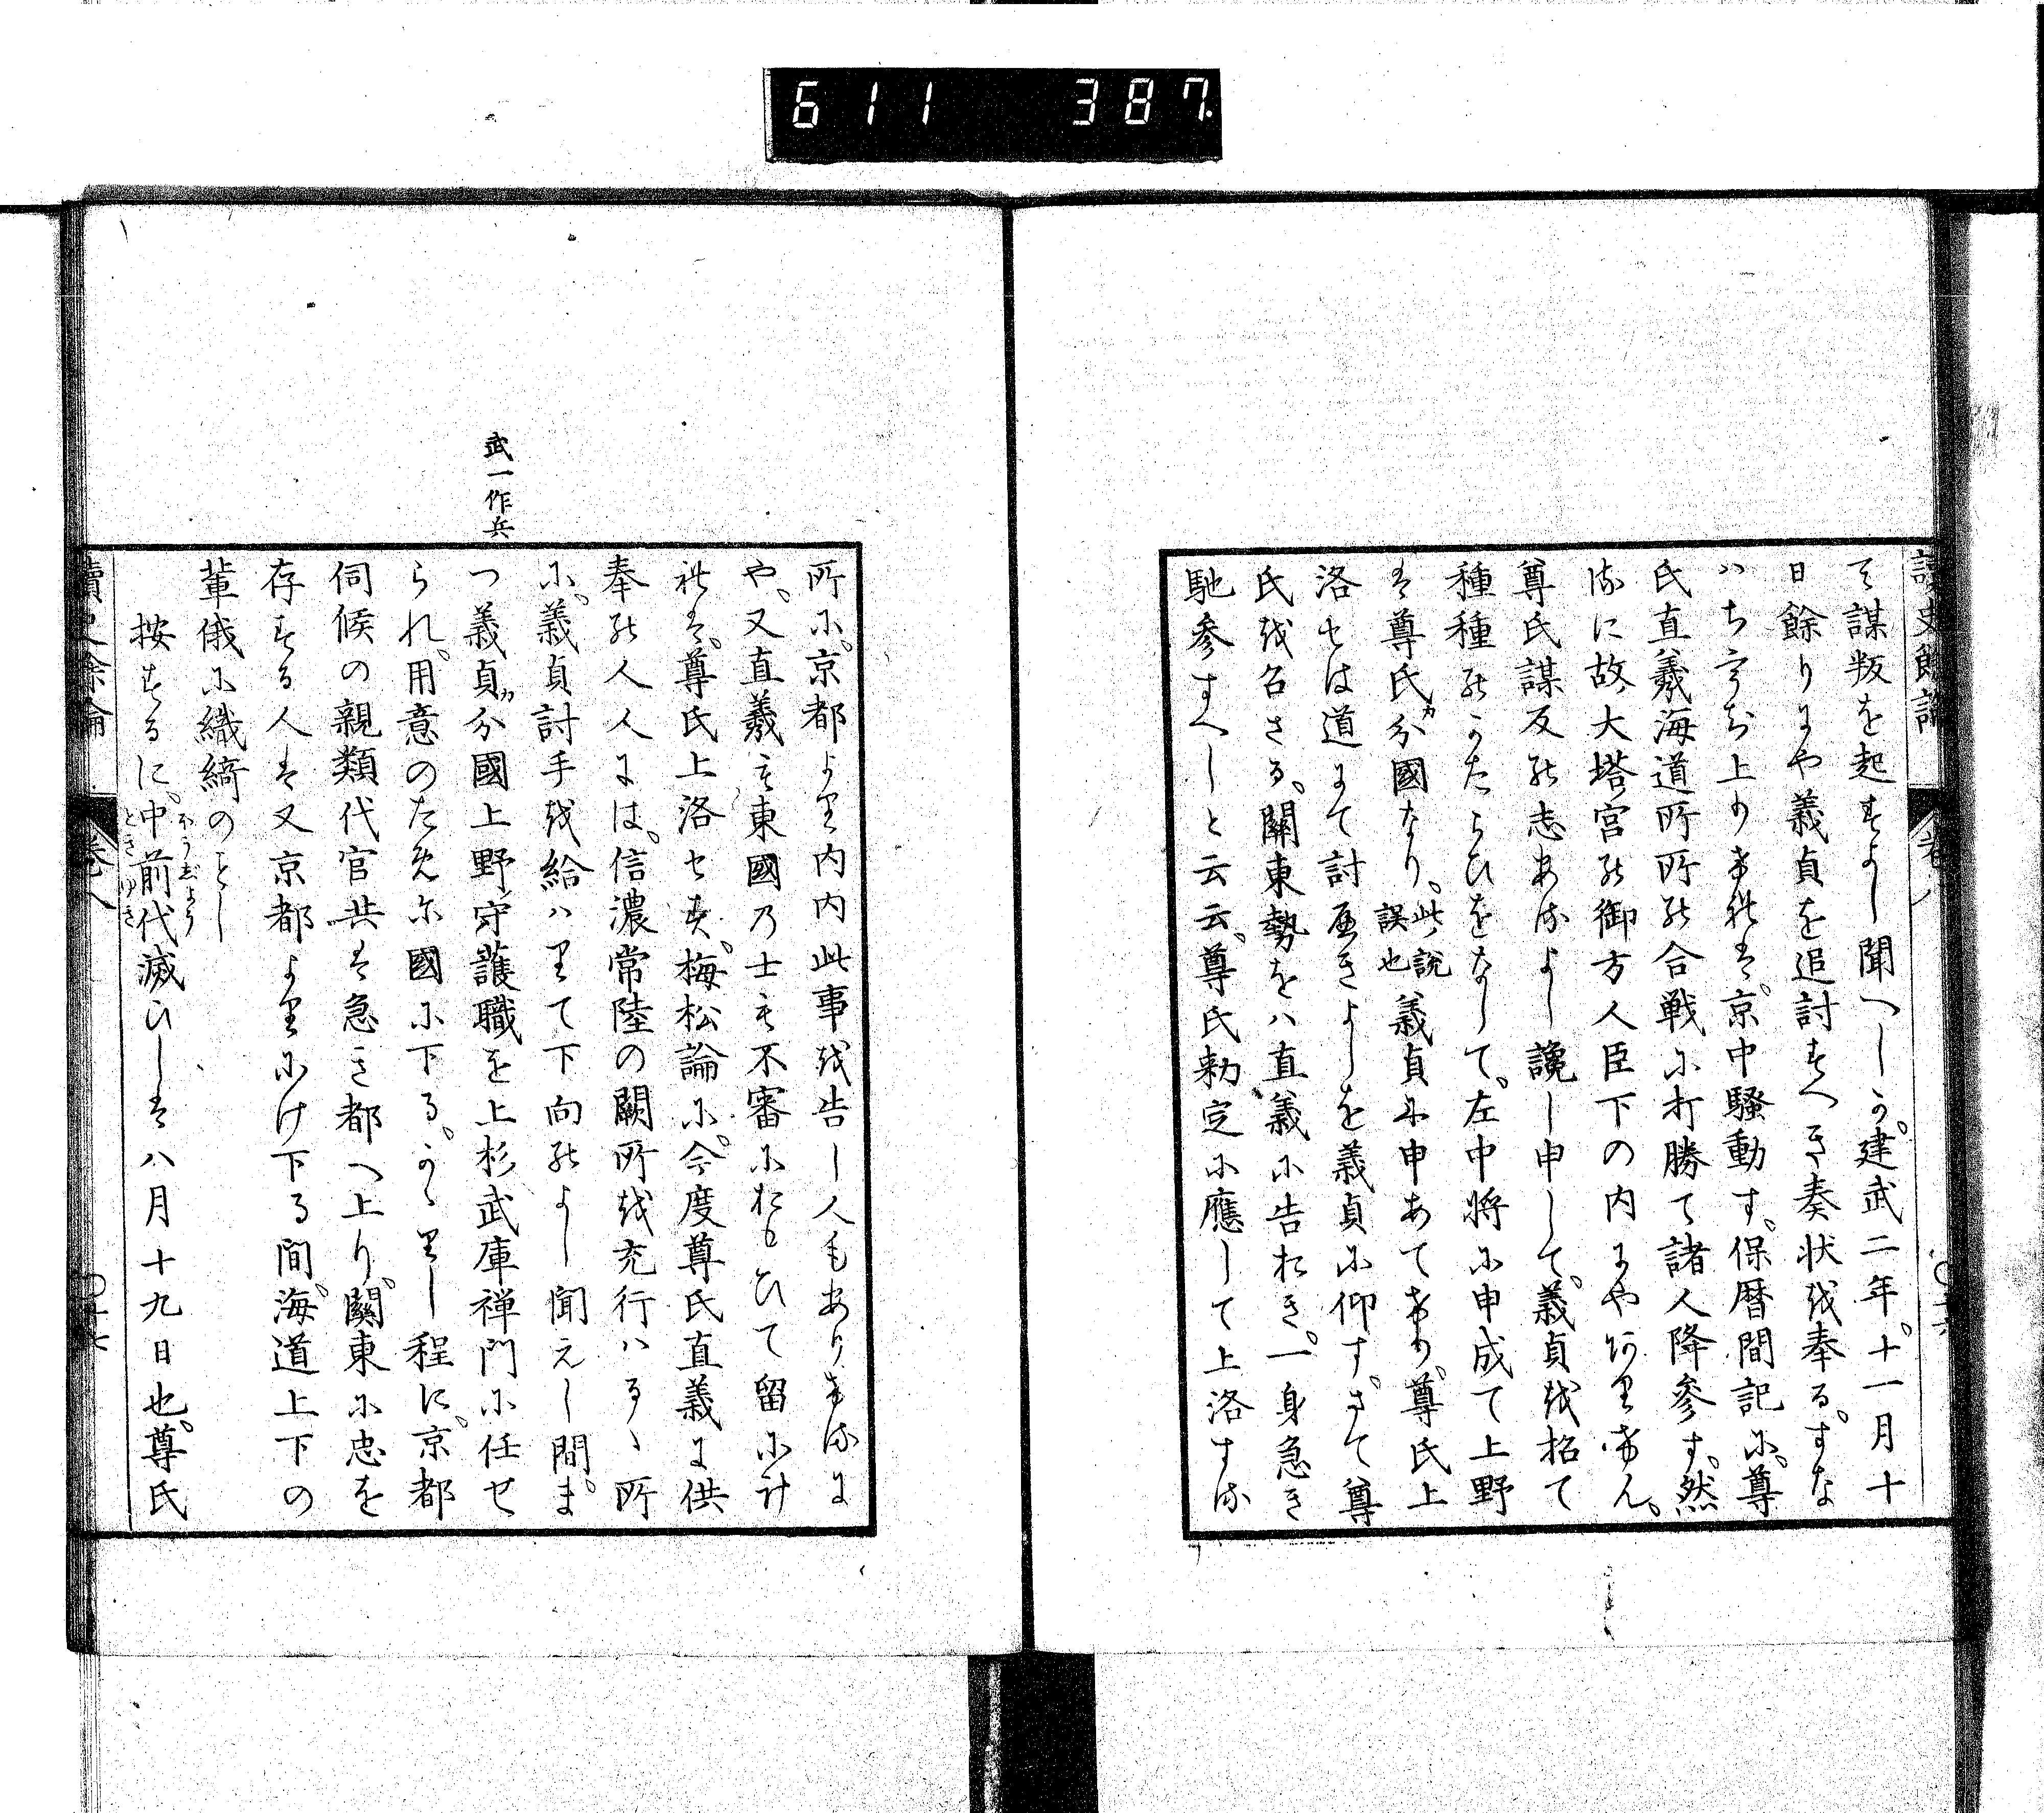 611 387
讀史餘論 卷八
て謀叛を起すよし聞へしか。建武二年。十一月十
日餘りにや義貞を追討すへき奏状を奉る。すな
はち寺より上のけれは。京中騒動す。保暦間記に。尊
氏直義海道所所の合戦に打勝て諸人降參す。然
るに故大塔宮の御方人臣下の内にやありけん。
尊氏謀反の志あるよし讒し申して。義貞を招て
種種のかたらひをなして。左中将に申成て上野
は尊氏カ分國なり。此説誤也義貞に申あてけり。尊氏上
洛せは道にて討へきよしを義貞に仰す。さて尊
氏を召さる。關東勢をは直義に告おき。一身急き
馳參すへしと云云。尊氏勅定に應して上洛する
所に。京都より内内此事を告し人もありけるに
や。又直義も東國の士も不審におもひて留に計
れは。尊氏上洛せす。梅松論に。今度尊氏直義に供
奉の人人には。信濃常陸の闕所を充行はるゝ所
に。義貞討手を給はりて下向のよし聞えし間。ま
つ義貞カ分國上野守護職を上杉武庫禅門に任せ
られ。用意のために國に下る。かゝりし程に。京都
伺候の親類代官共は急き都へ上り。關東に忠を
存する人は又京都よりにけ下る間。海道上下の
輩俄に織綺のことし
按するに。中前代滅ひしは八月十九日也。尊氏
武一作兵
讀史餘論 卷八